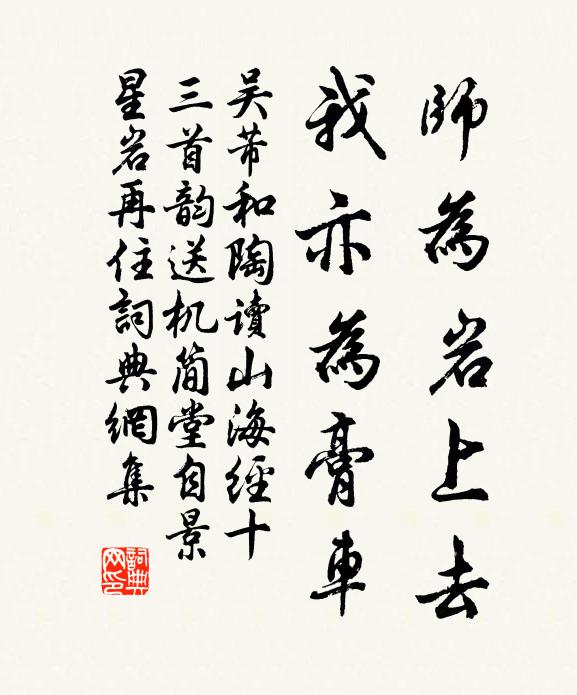 師為岩上去
我亦為膏車
吴芾和陶讀山海經十
三首韵送机简堂自景
星岩再住詞典網集
詞典网印